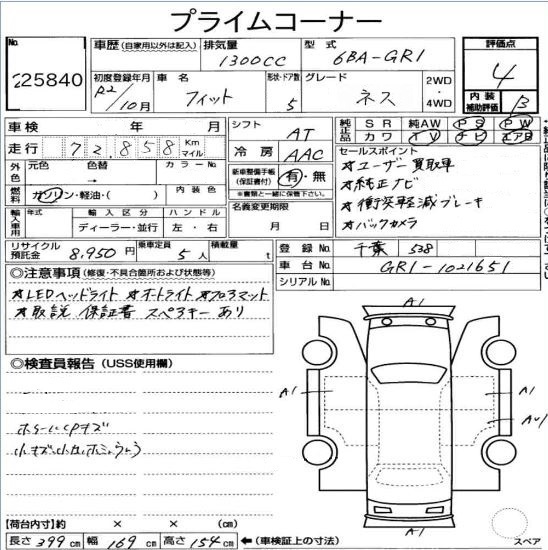 プライムコーナー
No. 225840
車歴 (自家用以外は記入) 排気量 1300CC 型式 6BA-GR1 評価点 4
初度登録年月 R2/10月 車名 フィット 形状・ドア数 5 グレード ネス 2WD・4WD 内装補助評価 B
車検 年 月 シフト AT 純正品 SR 純AW PS PW
カワ TV ナビ エアB
走行 72,858 Km マイル 冷房 AAC セールスポイント
外色 元色 色替 カラーNo. 新車整備手帳(保証書付) 有・無 ★ユーザー買取車
※書類と一緒に保管下さい。 ★純正ナビ
燃料 ガソリン・軽油・( ) 内装色 名義変更期限 ★衝突軽減ブレーキ
輸入車用 年式 輸入区分 ハンドル 月 日 ★バックカメラ
ディーラー・並行 左・右
リサイクル預託金 8,950円 乗車定員 5人 積載量 t 登録No. 千葉 538
◎注意事項 (修復・不具合箇所および状態等) 車台No. GR1-1021651
シリアルNo.
★LEDヘッドライト ★オートライト ★フロアマット
★取説 保証書 スペアキー あり
◎検査員報告 (USS使用欄)
A1
A1 A1
AU1
ホイールCPキズ
A1
【荷台内寸】約 × × (cm)
長さ 399cm 幅 169cm 高さ 154cm ←(車検証上の寸法) スペア